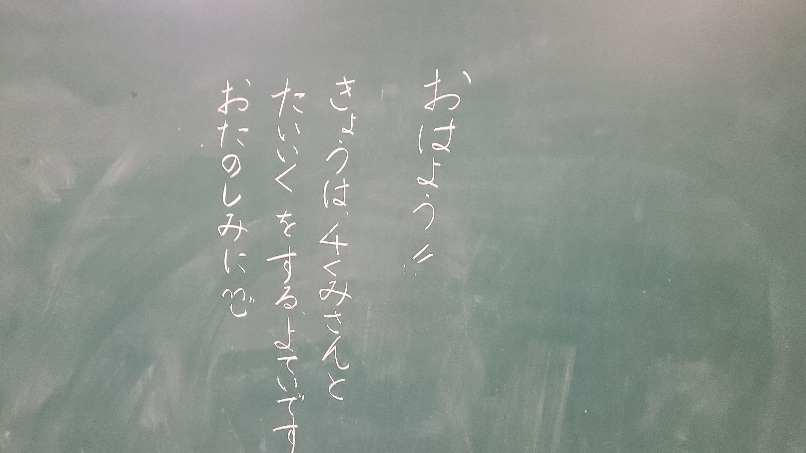 おはよう!!
きょうは、4くみさんと
たいいくをするよていです
おたのしみに